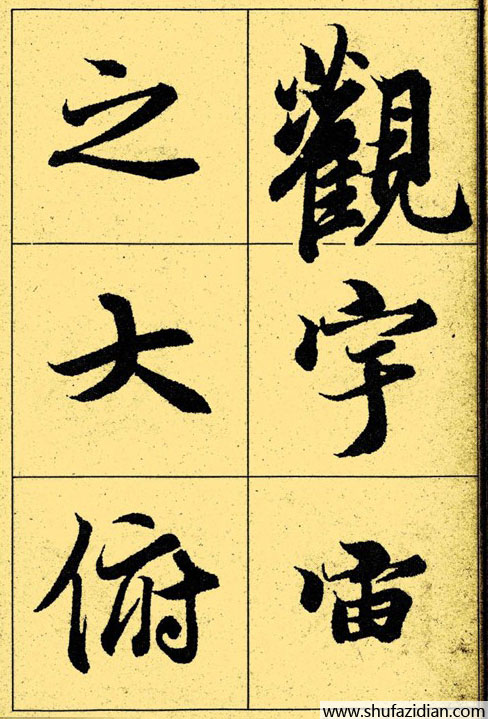 觀宇宙
之大俯
www.shufazidian.com